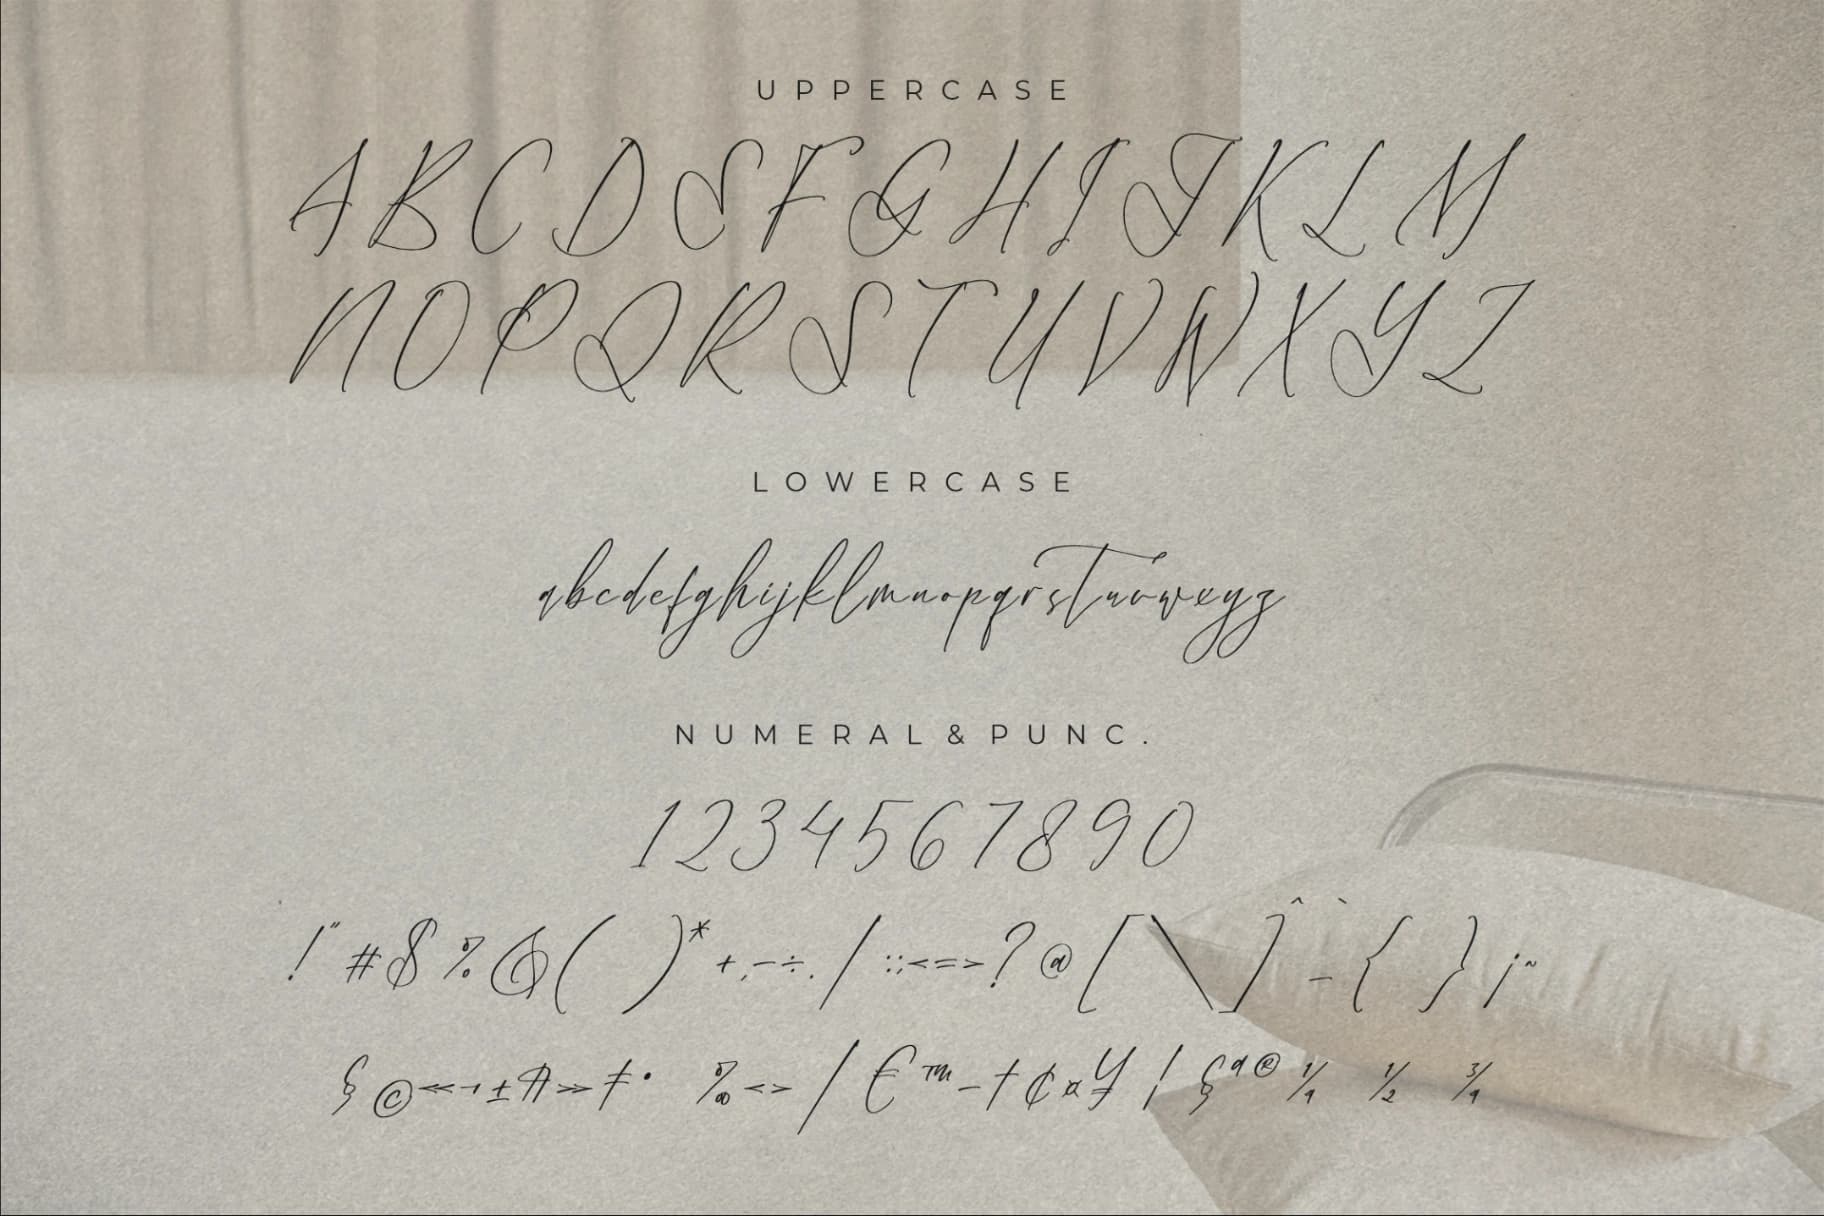 UPPERCASE
ABCDEFGHIJKLM
NOPQRSTUVWXYZ
LOWERCASE
abcdefghijklmnopqrstuvwxyz
NUMERAL & PUNC.
1234567890
!"#$%&()*+,-÷./:;<=>?@[\]^_`{}¡~
§©«¬±¶»‡• ‰<>/€™–†¢¤¥¦§ª®¼ ½ ¾